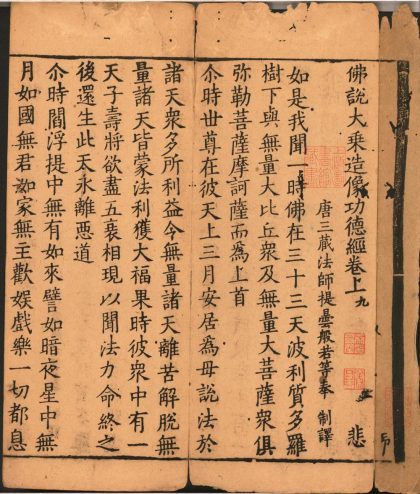 佛說大乘造像功德經卷上 九 悲
唐三藏法師提曇般若等奉 制譯
如是我聞一時佛在三十三天波利質多羅
樹下與無量大比丘衆及無量大菩薩衆俱
彌勒菩薩摩訶薩而為上首
尒時世尊在彼天上三月安居為母說法於
諸天衆多所利益令無量諸天離苦解脫無
量諸天皆蒙法利獲大福果時彼衆中有一
天子壽將欲盡五衰相現以聞法力命終之
後還生此天永離惡道
尒時閻浮提中無有如來譬如暗夜星中無
月如國無君如家無主歡娛戲樂一切都息